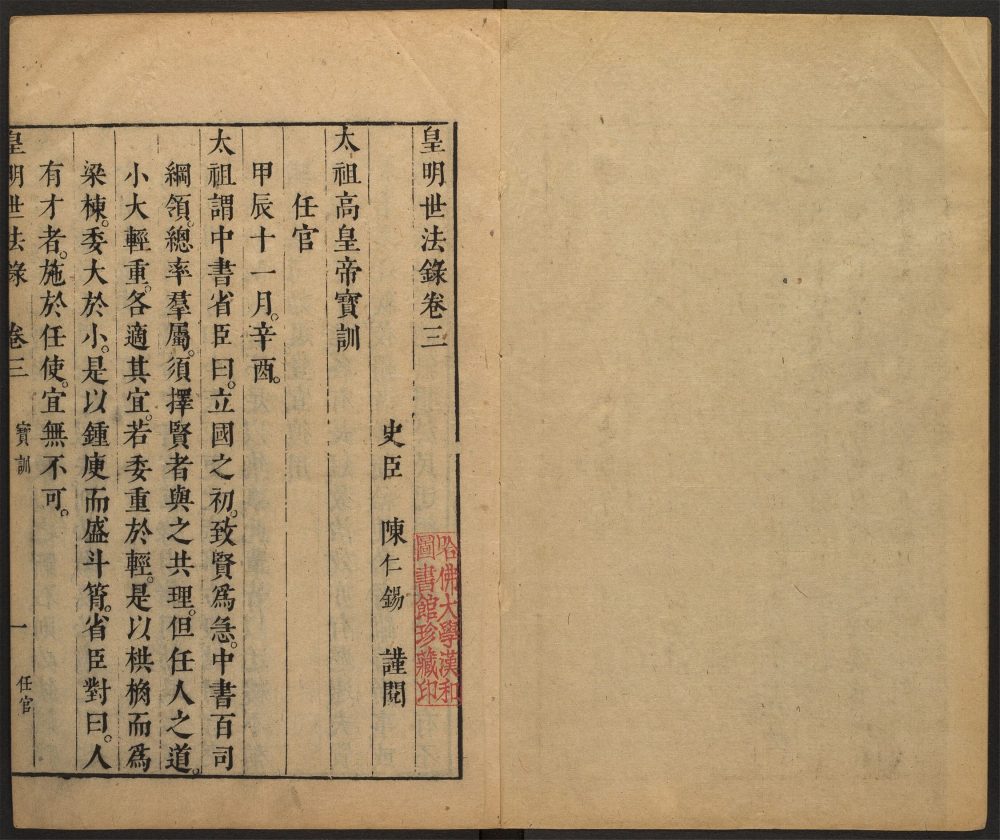 皇明世法錄卷三
史臣 陳仁錫 謹閱
太祖高皇帝寶訓
任官
甲辰十一月。辛酉。
太祖謂中書省臣曰。立國之初。致賢爲急。中書百司
綱領。總率羣屬。須擇賢者與之共理。但任人之道。
小大輕重。各適其宜。若委重於輕。是以栱桷而爲
梁棟。委大於小。是以鍾庾而盛斗筲。省臣對曰。人
有才者。施於任使。宜無不可。
皇明世法錄 卷三 寶訓 一 任官
哈佛大學漢和
圖書館珍藏印